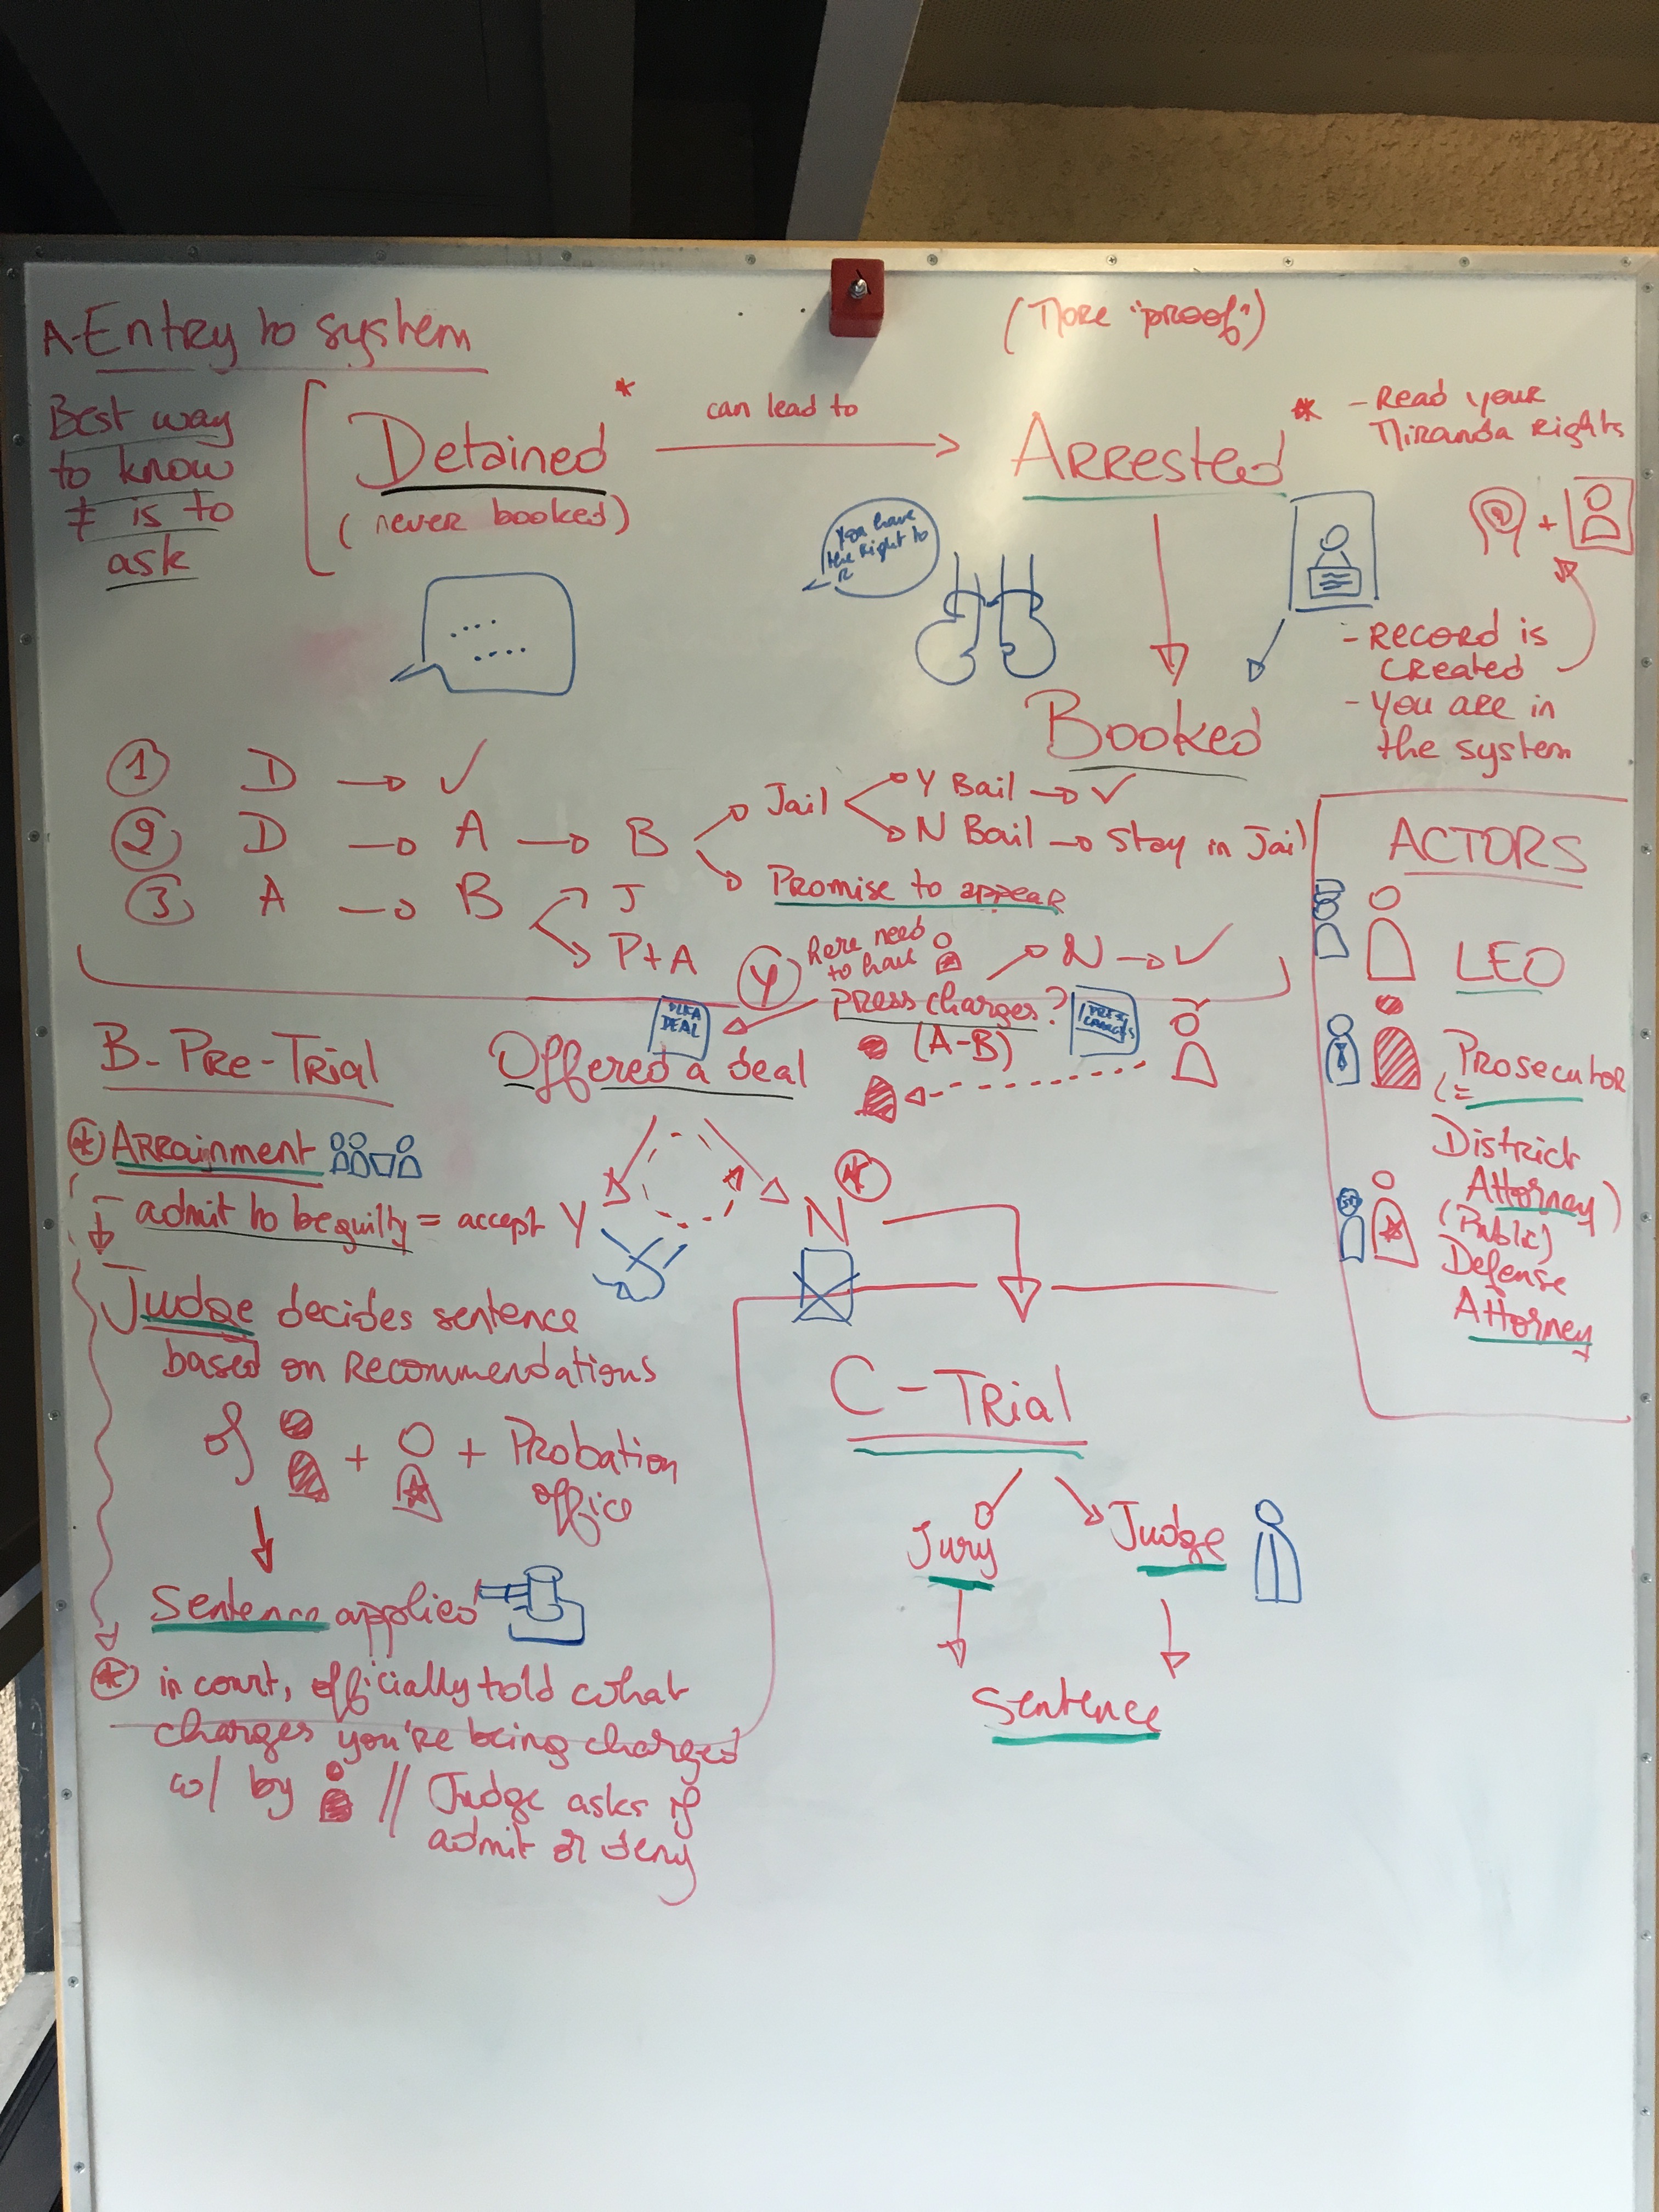 A-Entry to system
(More "proof")
Best way
to know
≠ is to
ask
Detained *
(never booked)
can lead to
Arrested *
- Read your
Miranda Rights
You have
the right to
R
+
- Record is
created
- You are in
the system
Booked
① D → ✓
② D → A → B
Jail
Y Bail → ✓
N Bail → Stay in Jail
Promise to appear
③ A → B
J
P+A
ACTORS
LEO
Prosecutor
(=
District
Attorney)
(Public)
Defense
Attorney
Y
here need
to have
N → ✓
press charges?
(A-B)
PRESS
CHARGES
PLEA
DEAL
B- Pre-Trial
Offered a deal
* Arrainment
- admit to be guilty = accept Y
N *
Judge decides sentence
based on recommendations
of + + Probation
office
Sentence applied
* in court, officially told what
charges you're being charged
w/ by // Judge asks if
admit or deny
C - Trial
Jury
Judge
Sentence